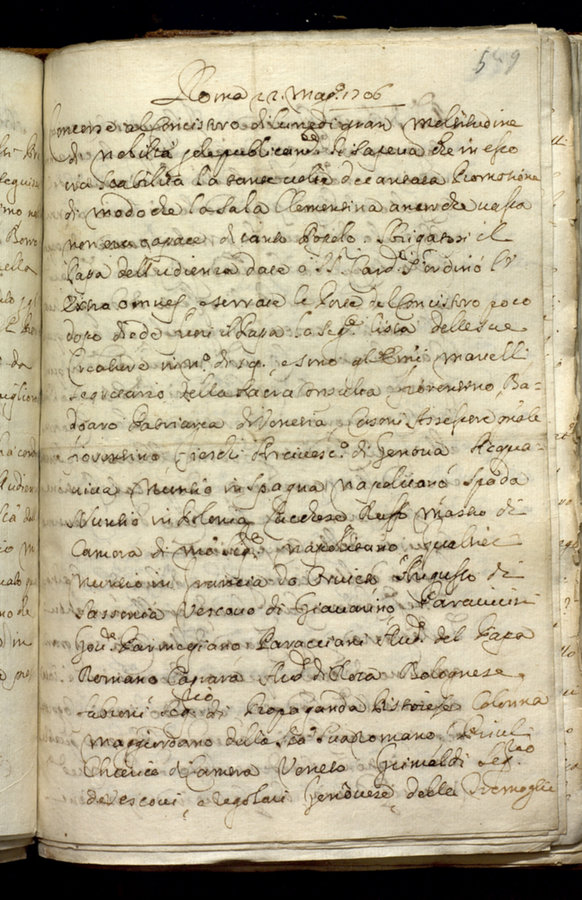 559
Roma 22. Mag.º 1706
Concorse al Concistoro di lunedi gran moltitudine
di nobiltà, e de publicani che si sapeva che in esso
era stabilita la tante volte decantata Promotione
di modo che la Sala Clementina ancorche vasta
non era capace di tanto Popolo. Sbrigatosi il
Papa dell'udienza date a SS.ri Card.li s'ordinò l'
Extra omnes, e serrate le Porte del Concistoro poco
doppo diede fuori il Papa la seg.te lista delle sue
Creature in n.º di 20. e sono gl'Em.i Marelli
Segretario della Sacra Consulta Fiorentino, Ba-
doaro Patriarca di Venetia, Corsini Tesoriere g'nale
Fiorentino, Fieschi Arcivesc.º di Genova, Acqua-
viva Nuntio in Spagna Napolitano, Spada
Nuntio in Polonia Lucchese, Ruffo Mastro di
Camera di Napolitano, Gualtieri
Nuntio in Francia da Orvieto, Augusto di
Sassonia Vescovo di Giavarino, Paravicini
Gov.re Parmegiano, Paracciani Aud.re del Papa
Romano, Caprara Aud.re di Rota Bolognese
Fabroni Seg.rio di Propaganda Pistoiese, Colonna
Maggiordomo della S.tà Sua Romano, Priuli
Chierico di Camera Veneto, Grimaldi Seg.rio
de Vescovi, e Regolari Genovese, della Tremoglie